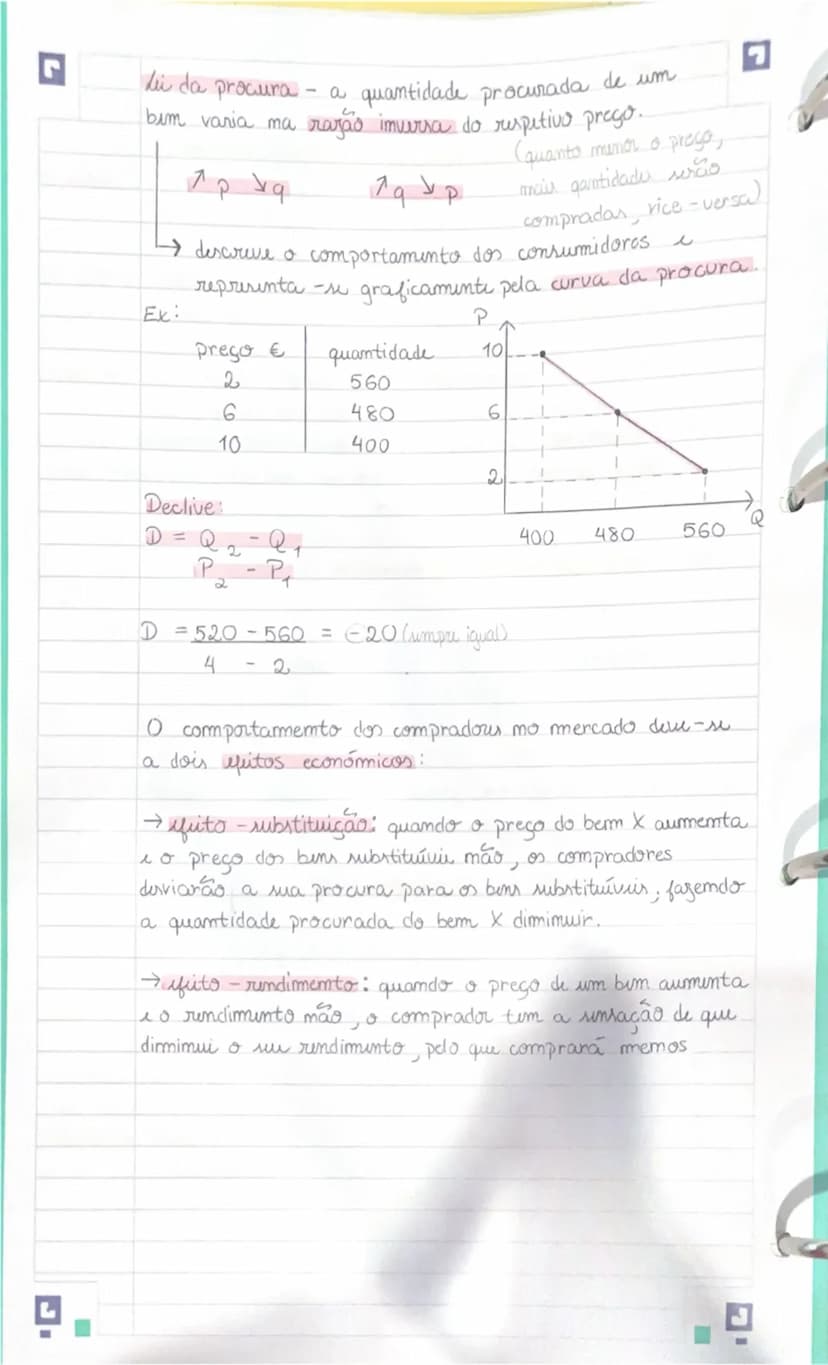 Lei da procura - a quantidade procurada de um
bem varia na razão inversa do respetivo preço.
(quanto menor o preço,
mais qantidade serão
compradas, vice-versa)
↗ p ↘ q ↗ q ↘ p
→ descreve o comportamento dos consumidores e
representa-se graficamente pela curva da procura.
Ex:
preço € quantidade
2 560
6 480
10 400
P
10
6
2
400 480 560 Q
Declive:
D = Q2 - Q1
P2 - P1
D = 520 - 560 = -20 (sempre igual)
4 - 2
O comportamento dos compradores no mercado deve-se
a dois efeitos económicos:
→ efeito-substituição: quando o preço do bem X aumenta
e o preço dos bens substituíveis não, os compradores
desviarão a sua procura para os bens substituíveis, fazendo
a quantidade procurada do bem X diminuir.
→ efeito-rendimento: quando o preço de um bem aumenta
e o rendimento não, o comprador tem a sensação de que
diminui o seu rendimento, pelo que comprará menos